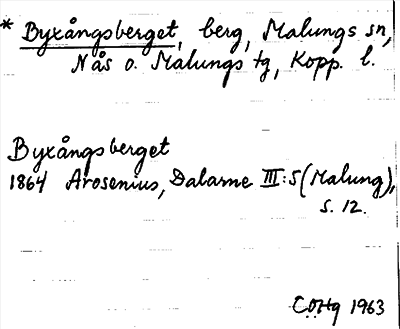 * Byxångsberget, berg, Malungs sn,
Nås o. Malungs tg, Kopp. l.
Byxångsberget
1864 Arosenius, Dalarne III:5 (Malung),
s. 12.
C.O.Hg 1963